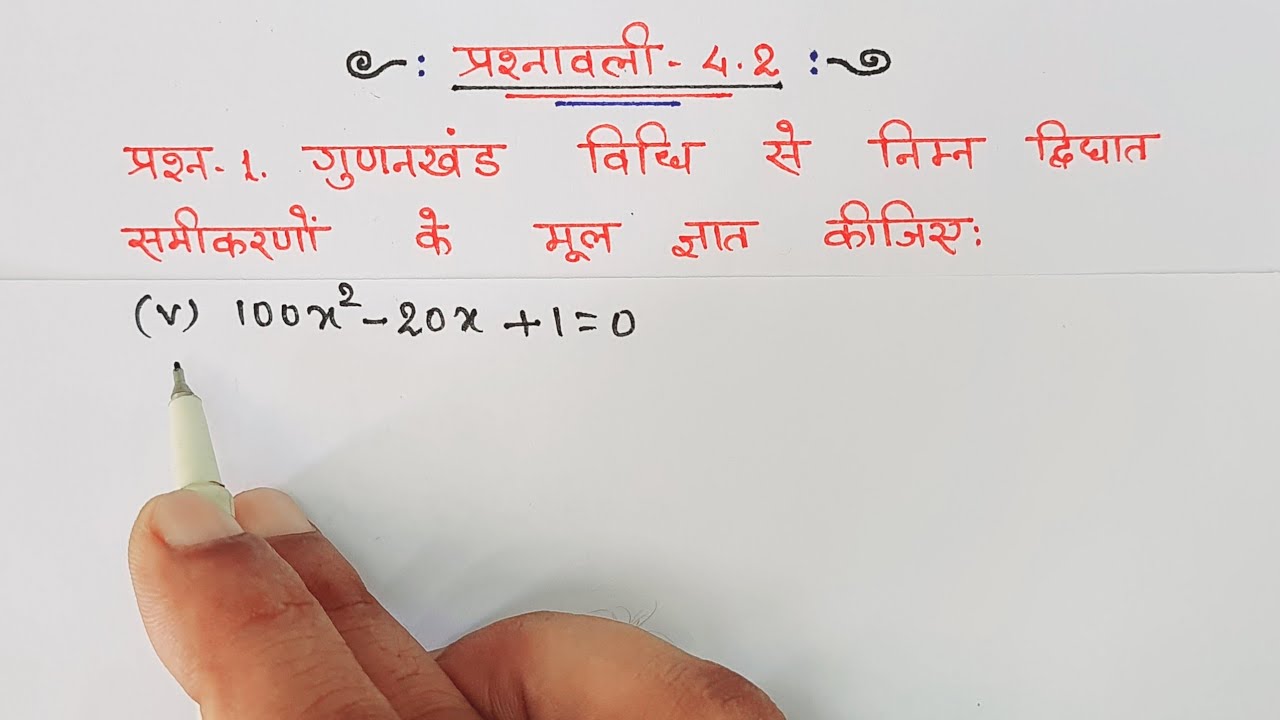 : प्रश्नावली - 4.2 :
प्रश्न-1. गुणनखंड विधि से निम्न द्विघात
समीकरणों के मूल ज्ञात कीजिए:
(v) 100x² - 20x + 1 = 0